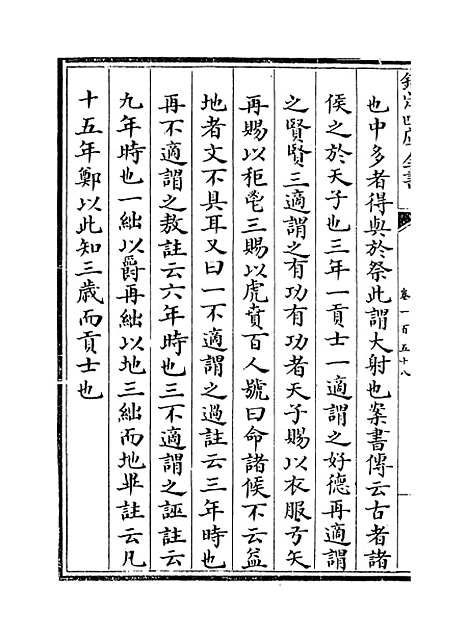 欽定四庫全書
卷一百五十八
也中多者得與於祭此謂大射也案書傳云古者諸
侯之於天子也三年一貢士一適謂之好德再適謂
之賢賢三適謂之有功有功者天子賜以衣服弓矢
再賜以秬鬯三賜以虎賁百人號曰命諸侯不云益
地者文不具耳又曰一不適謂之過註云三年時也
再不適謂之敖註云六年時也三不適謂之誣註云
九年時也一絀以爵再絀以地三絀而地畢註云凡
十五年鄭以此知三歲而貢士也